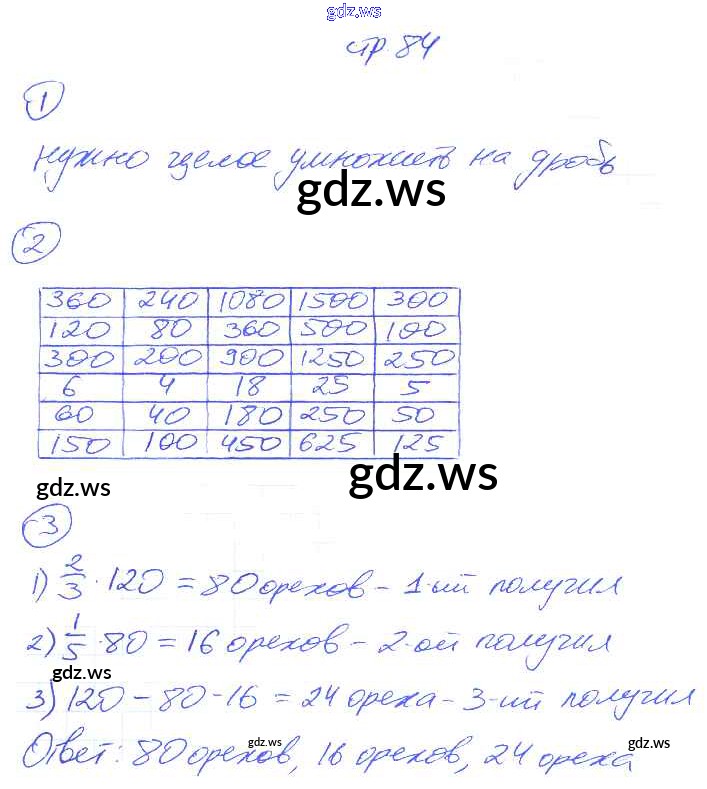 gdz.ws
стр. 84
1
нужно целое умножить на дробь
gdz.ws
2
360 240 1080 1500 300
120 80 360 500 100
300 200 900 1250 250
6 4 18 25 5
60 40 180 250 50
150 100 450 625 125
gdz.ws
gdz.ws
3
1) 2/3 · 120 = 80 орехов - 1-ый получил
2) 1/5 · 80 = 16 орехов - 2-ой получил
gdz.ws
3) 120 - 80 - 16 = 24 ореха - 3-ий получил
Ответ: 80 орехов, 16 орехов, 24 ореха
gdz.ws
gdz.ws